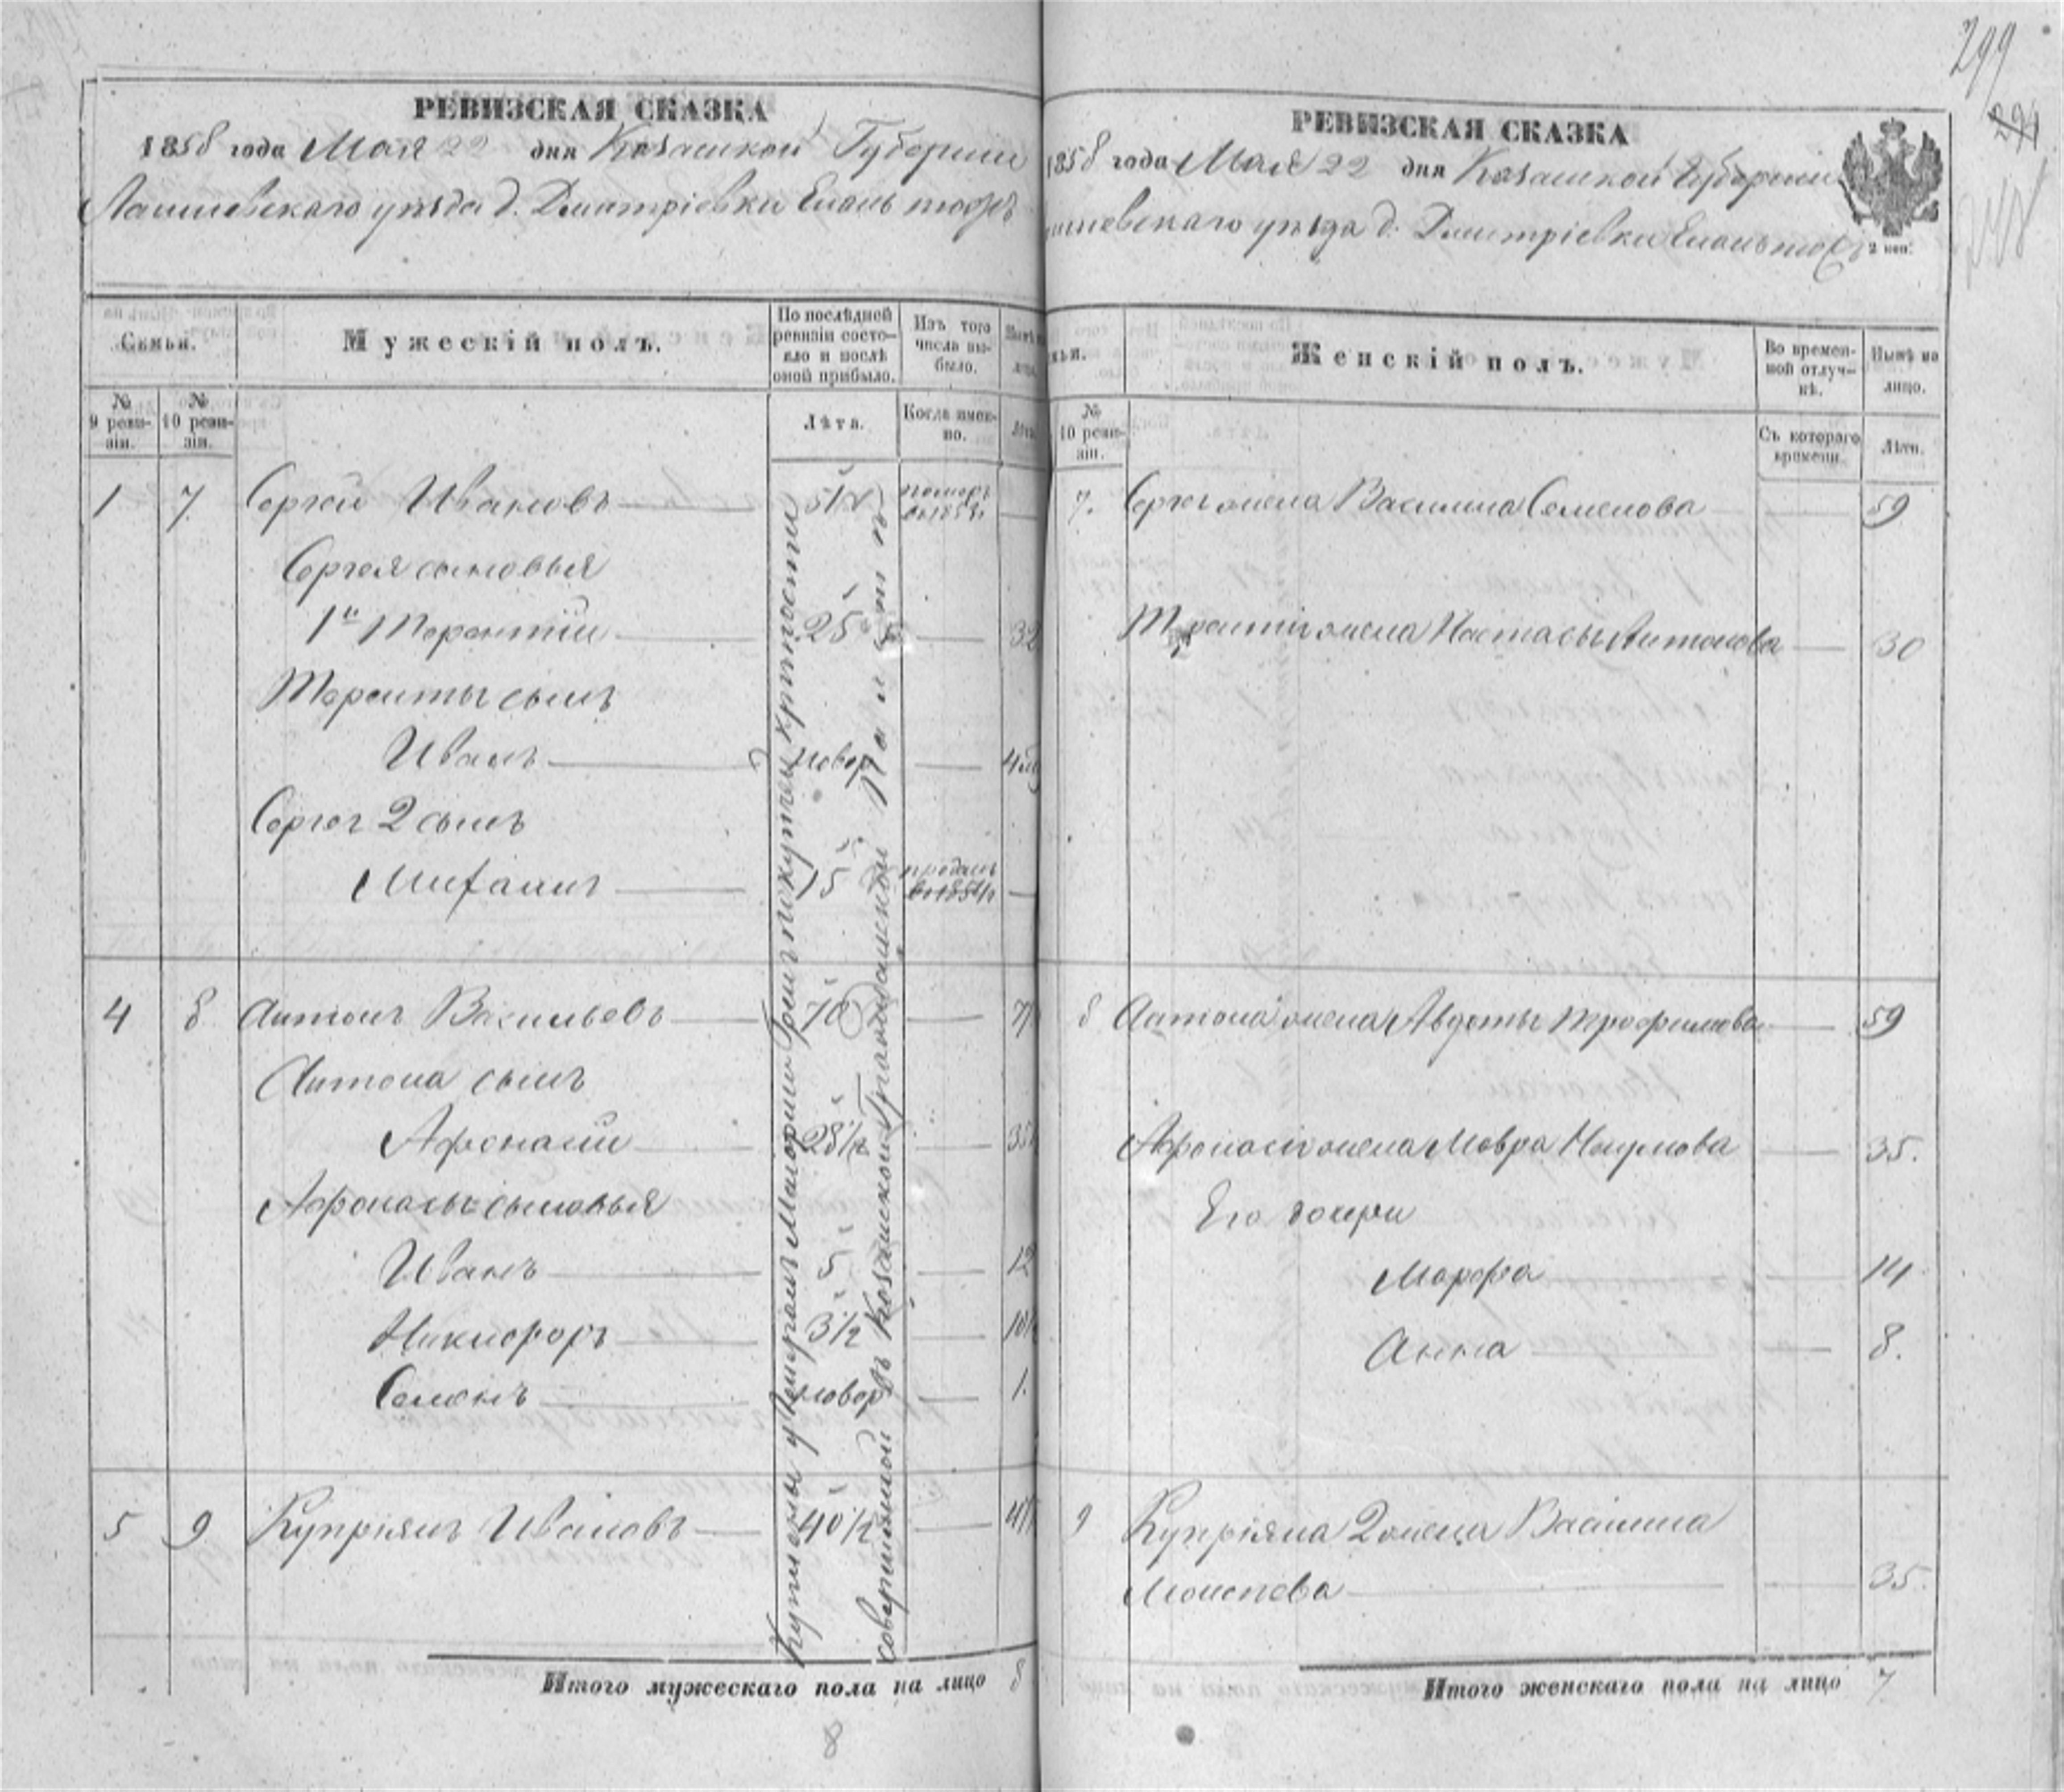 299
РЕВИЗСКАЯ СКАЗКА
1858 года Мая 22 дня Казанской Губернии
Лаишевскаго уѣзда д. Дмитріевки Елань тожъ
Семьи.
Мужескій полъ.
По послѣдней ревизіи состояло и послѣ оной прибыло.
Изъ того числа выбыло.
№ 9 ревизіи.
№ 10 ревизіи.
Лѣта.
Когда именно.
1 7 Сергей Ивановъ 51 померъ
Сергея сыновья
1й Терентій 25 32
Терентья сынъ
Иванъ новор
Сергея 2 сынъ
Михаилъ 15 проданъ
4 8 Антонъ Васильевъ 70
Антона сынъ
Афонасій 28½ 35
Афонасья сыновья
Иванъ 5 12
Никифоръ 3½ 10
Семенъ новор 1.
5 9 Купріянъ Ивановъ 40½
Куплены у
совершенной въ Казанской Гражданской Палатѣ
Итого мужескаго пола на лицо 8
8
РЕВИЗСКАЯ СКАЗКА
1858 года Мая 22 дня Казанской Губерніи
уѣзда д. Дмитріевки Елань тожъ
2 коп.
Женскій полъ.
Во временной отлучкѣ.
Нынѣ на лицо.
№ 10 ревизіи.
Съ котораго времени.
Лѣта.
7. Сергея жена Василиса Семенова 59
Терентія жена Настасья Антонова 30
8 Антона жена Авдотья Трофимова 59
Афонасія жена Мавра Наумова 35.
Его дочери
Марфа 14
Анна 8.
9 Купріяна 2 жена Василиса
Моисеева 35.
Итого женскаго пола на лицо 7